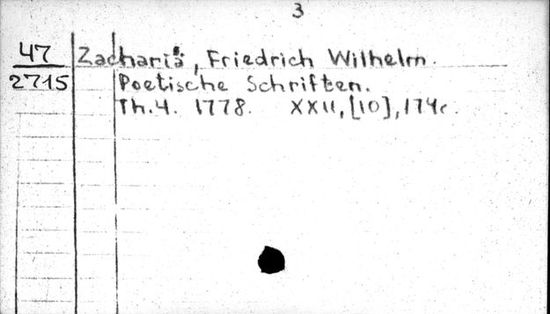 3
47
2715
Zachariä, Friedrich Wilhelm.
Poetische Schriften.
Th.4. 1778. XXII, [10], 174с.